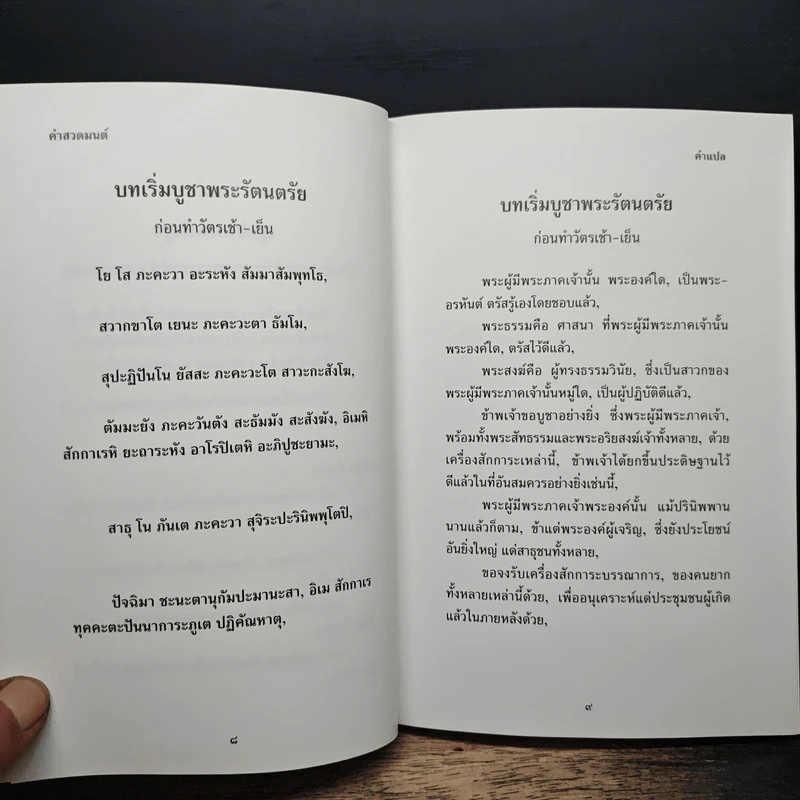 คำสวดมนต์
บทเริ่มบูชาพระรัตนตรัย
ก่อนทำวัตรเช้า-เย็น
โย โส ภะคะวา อะระหัง สัมมาสัมพุทโธ,
สวากขาโต เยนะ ภะคะวะตา ธัมโม,
สุปะฏิปันโน ยัสสะ ภะคะวะโต สาวะกะสังโฆ,
ตัมมะยัง ภะคะวันตัง สะธัมมัง สะสังฆัง, อิเมหิ
สักกาเรหิ ยะถาระหัง อาโรปิเตหิ อะภิปูชะยามะ,
สาธุ โน ภันเต ภะคะวา สุจิระปะรินิพพุโตปิ,
ปัจฉิมา ชะนะตานุกัมปะมานะสา, อิเม สักกาเร
ทุคคะตะปันนาการะภูเต ปฏิคัณหาตุ,
๘
คำแปล
บทเริ่มบูชาพระรัตนตรัย
ก่อนทำวัตรเช้า-เย็น
พระผู้มีพระภาคเจ้านั้น พระองค์ใด, เป็นพระ-
อรหันต์ ตรัสรู้เองโดยชอบแล้ว,
พระธรรมคือ ศาสนา ที่พระผู้มีพระภาคเจ้านั้น
พระองค์ใด, ตรัสไว้ดีแล้ว,
พระสงฆ์คือ ผู้ทรงธรรมวินัย, ซึ่งเป็นสาวกของ
พระผู้มีพระภาคเจ้านั้นหมู่ใด, เป็นผู้ปฏิบัติดีแล้ว,
ข้าพเจ้าขอบูชาอย่างยิ่ง ซึ่งพระผู้มีพระภาคเจ้า,
พร้อมทั้งพระสัทธรรมและพระอริยสงฆ์เจ้าทั้งหลาย, ด้วย
เครื่องสักการะเหล่านี้, ข้าพเจ้าได้ยกขึ้นประดิษฐานไว้
ดีแล้วในที่อันสมควรอย่างยิ่งเช่นนี้,
พระผู้มีพระภาคเจ้าพระองค์นั้น แม้ปรินิพพาน
นานแล้วก็ตาม, ข้าแต่พระองค์ผู้เจริญ, ซึ่งยังประโยชน์
อันยิ่งใหญ่ แด่สาธุชนทั้งหลาย,
ขอจงรับเครื่องสักการะบรรณาการ, ของคนยาก
ทั้งหลายเหล่านี้ด้วย, เพื่ออนุเคราะห์แด่ประชุมชนผู้เกิด
แล้วในภายหลังด้วย,
๙